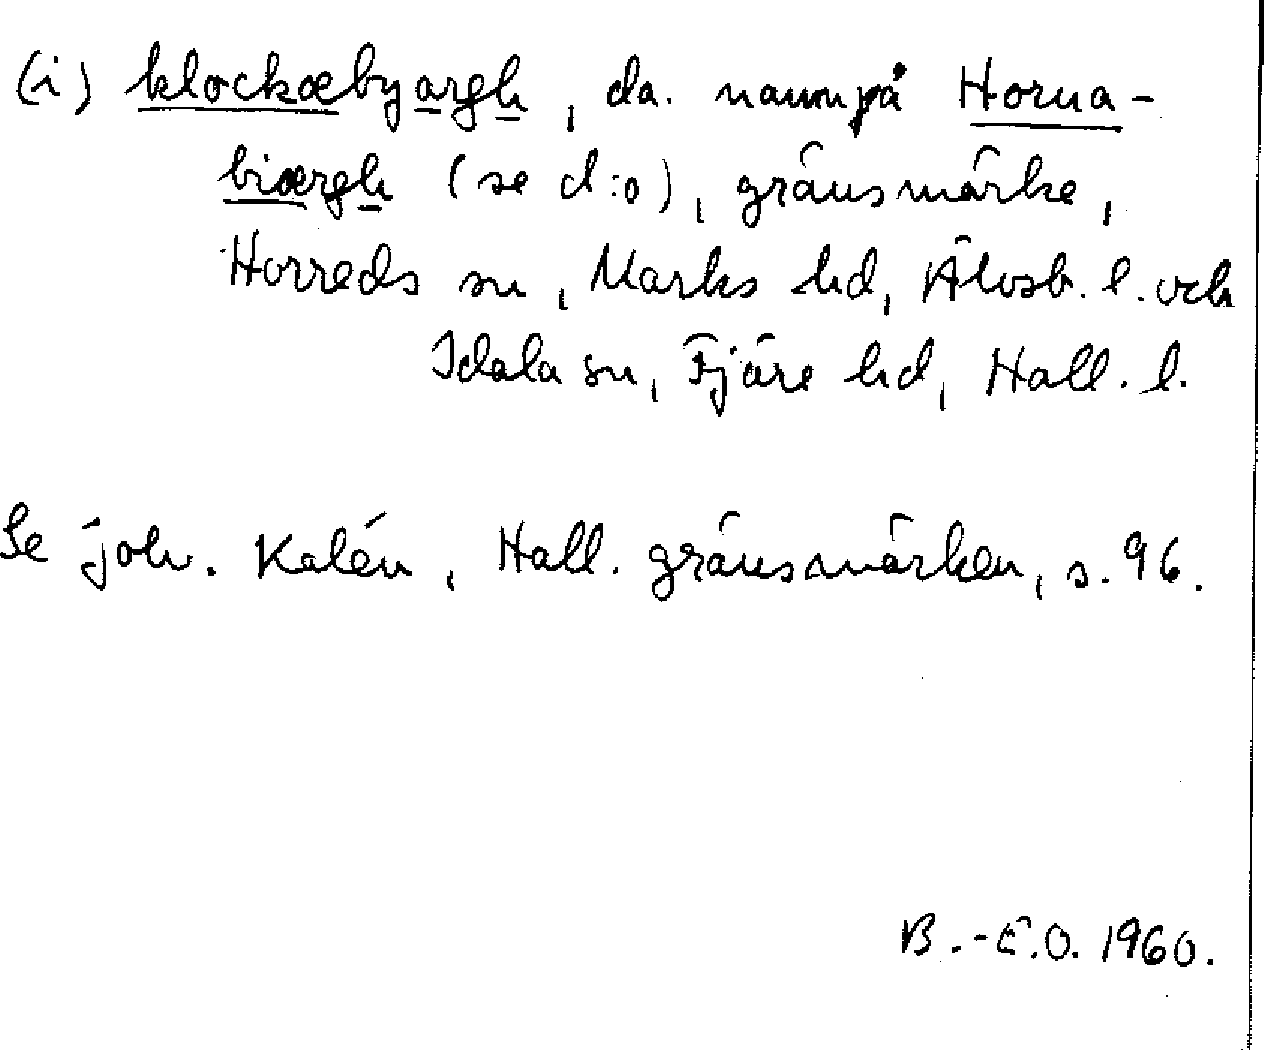 (i) klockæbyargh, da. namn på Horna-
biærgh (se d:o), gränsmärke,
Horreds sn, Marks hd, Älvsb. l. och
Idala sn, Fjäre hd, Hall. l.
Se Joh. Kalén, Hall. gränsmärken, s. 96.
B.-E.O. 1960.